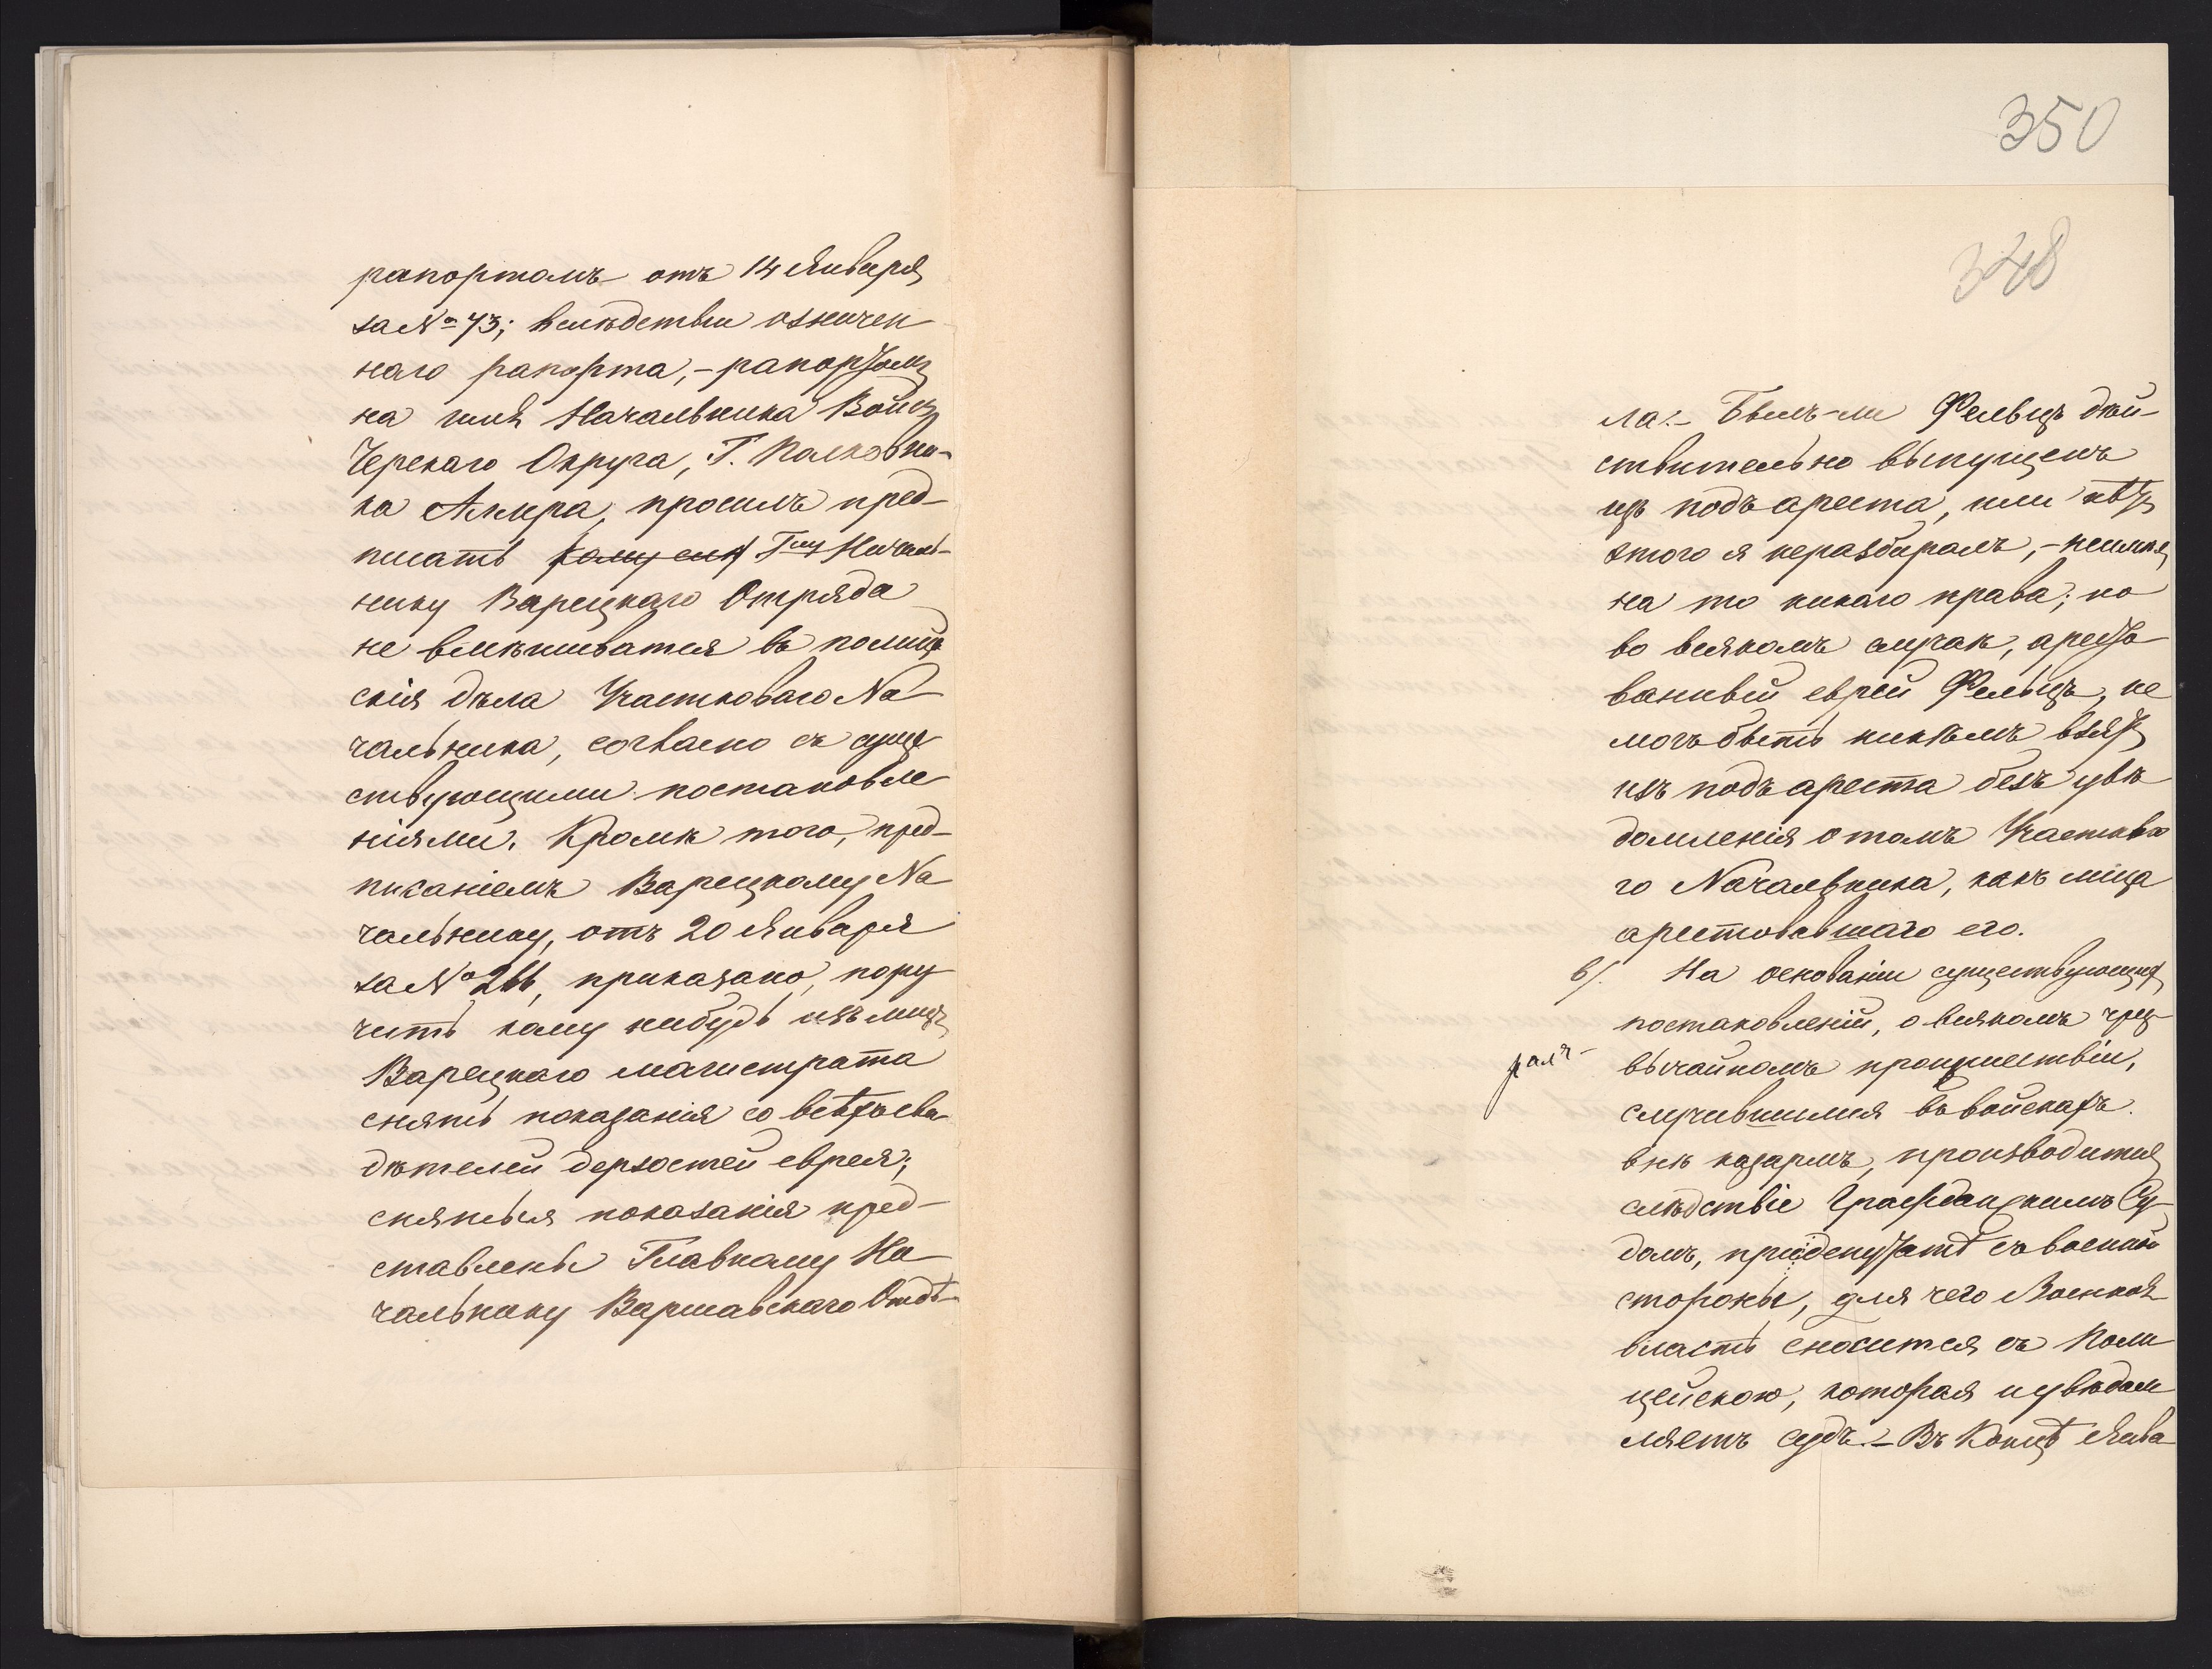 рапортомъ отъ 14 Января
за № 73; вслѣдствіи означен
наго рапорта,- рапортомъ
на имя Начальника Войскъ
Черскаго Округа, Г. Полковни-
ка Алхера, просилъ пред-
писать Г-ну Началь-
нику Варецкаго Отряда
не вмѣшиватся въ полицей
скія дѣла Участковаго На
чальника, согласно съ суще
ствующими постановле
ніями. Кромѣ того, пред-
писаніемъ Варецкому На
чальнику, отъ 20 Января
за № 266, приказано, пору
чить кому нибудь изъ лицъ
Варецкаго магистрата
снять показанія со всѣхъ сви
дѣтелей дерзостей еврея;
снятыя показанія пред-
ставлены Главному На
чальнику Варшавскаго Отдѣ-
350
348
ла.- Былъ-ли Фельцъ дѣй-
ствительно выпущенъ
изъ подъ ареста, или нѣтъ
этого я неразбиралъ,- неимѣя
на то никаго права; но
во всякомъ случаѣ, аресто
ванный еврей Фельцъ, не
могъ быть никѣмъ взятъ
изъ подъ ареста безъ увѣ
домленія о томъ Участково
го Начальника, какъ лица
арестовавшаго его.
в). На основаніи существующихъ
постановленій, о всякомъ чрез
вычайномъ произшествіи,
случившимся въ войскахъ
внѣ казармъ, производится
слѣдствіе Гражданскимъ Су-
домъ, при депутатѣ съ военной
стороны, для чего Военная
власть сносится съ Поли
цейскою, которая и увѣдом
ляетъ судъ.- Въ Концѣ Янва